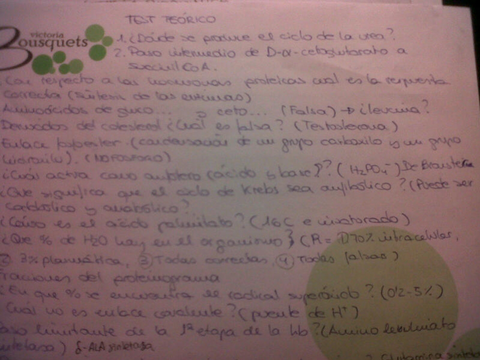 TEST TEÓRICO
victoria
Bousquets
1. ¿Dónde se produce el ciclo de la urea?
2. Paso intermedio de D-α-cetoglutarato a
succinil CoA.
Con respecto a las hormonas proteicas cual es la respuesta
correcta (Síntesis de las enzimas)
Aminoácidos de gluco... y ceto... (Falsa) → ileucina?
Derivados del colesterol ¿Cuál es falsa? (Testosterona)
Enlace fosfoester (condensación de un grupo carbonilo y un grupo
hidroxilo). (NOFOSFORO)
¿Cuál actua como anfótero (ácido y base)? (H₂PO₄⁻) De Brausted
¿Que significa que el ciclo de Krebs sea anfibólico? (Puede ser
catabólico y anabólico?
¿Cómo es el ácido palmitato? (16C e insaturado)
¿Que % de H₂O hay en el organismo? (R = ① 70% intracelular,
② 3% plasmática, ③ Todas correctas ④ Todas falsas)
Fracciones del proteinograma
¿En que % se encuentra el radical superóxido? (02-5%)
Cual no es enlace covalente? (puente de H⁺)
Paso limitante de la 1ª etapa de la Hb? (Amino levulinato
sintetasa) δ-ALA sintetasa